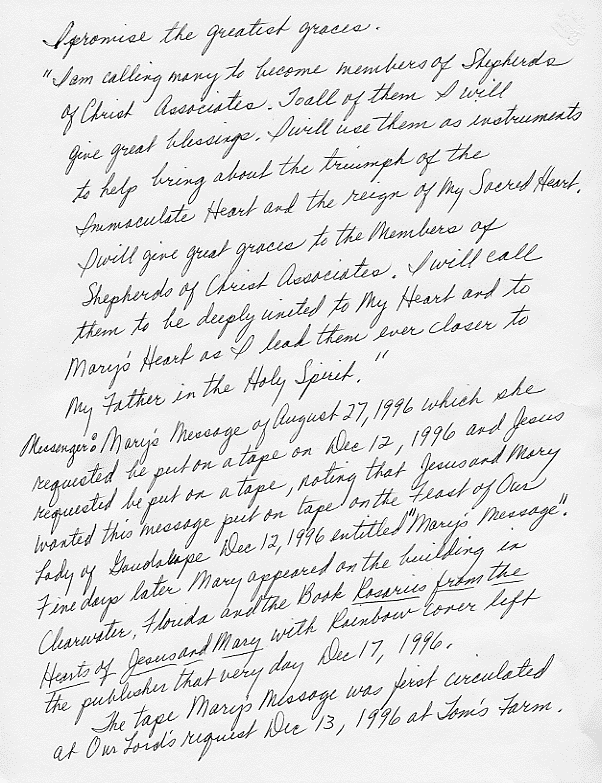 I promise the greatest graces.
"I am calling many to become members of Shepherds
of Christ Associates. To all of them I will
give great blessings. I will use them as instruments
to help bring about the triumph of the
Immaculate Heart and the reign of My Sacred Heart.
I will give great graces to the Members of
Shepherds of Christ Associates. I will call
them to be deeply united to My Heart and to
Mary's Heart as I lead them ever closer to
My Father in the Holy Spirit."
Messenger: Mary's Message of August 27, 1996 which she
requested be put on a tape on Dec 12, 1996 and Jesus
requested be put on a tape, noting that Jesus and Mary
wanted this message put on tape on the Feast of Our
Lady of Gaudalupe Dec 12, 1996 entitled "Mary's Message".
Five days later Mary appeared on the building in
Clearwater, Florida and the Book Rosaries from the
Hearts of Jesus and Mary with Rainbow cover left
the publisher that very day Dec 17, 1996.
The tape Mary's Message was first circulated
at Our Lord's request Dec 13, 1996 at Tom's Farm.